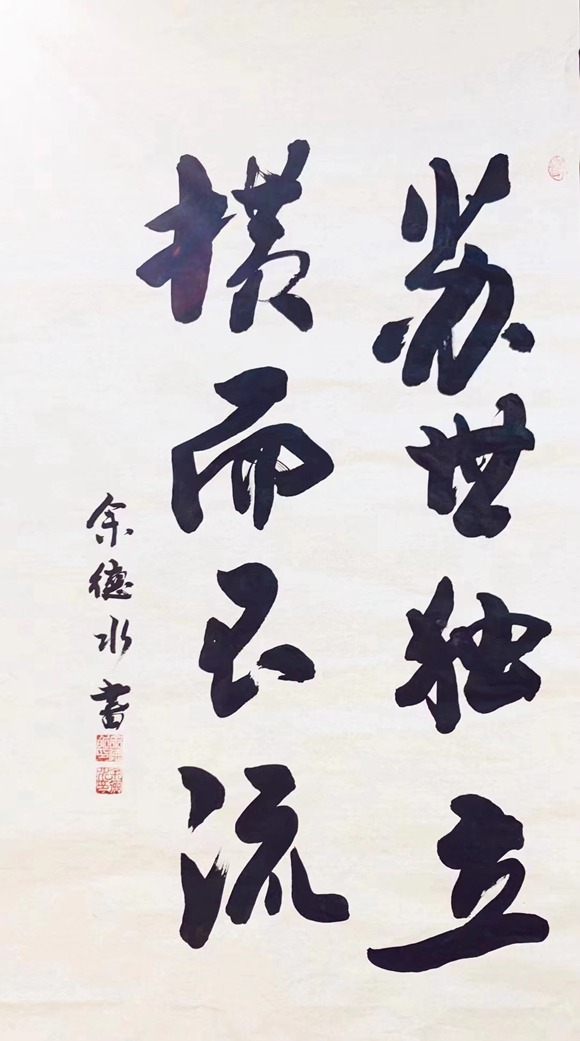 苏世独立
横而不流
余德水书